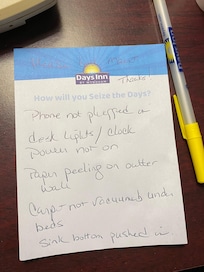 Days Inn
BY WYNDHAM
Thanks!
How will you Seize the Days?
Phone not plugged in
desk lights / clock
power not on
Paper peeling on outter
wall
Carpet not vacuumed under
beds
Sink button pushed in